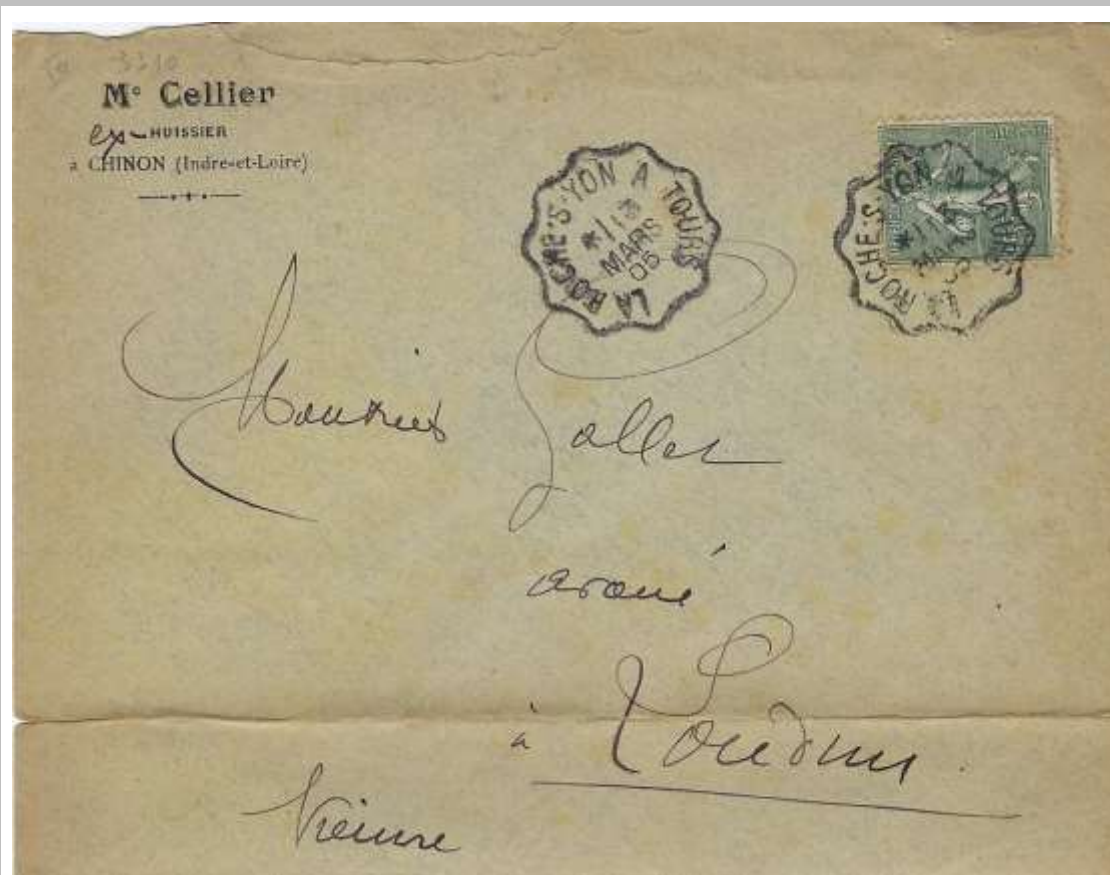 Me Cellier
ex-HUISSIER
à CHINON (Indre-et-Loire)
LA ROCHE-S-YON A TOURS
MARS
05
LA ROCHE-S-YON A TOURS
Monsieur
avoué
à Loudun
Vienne